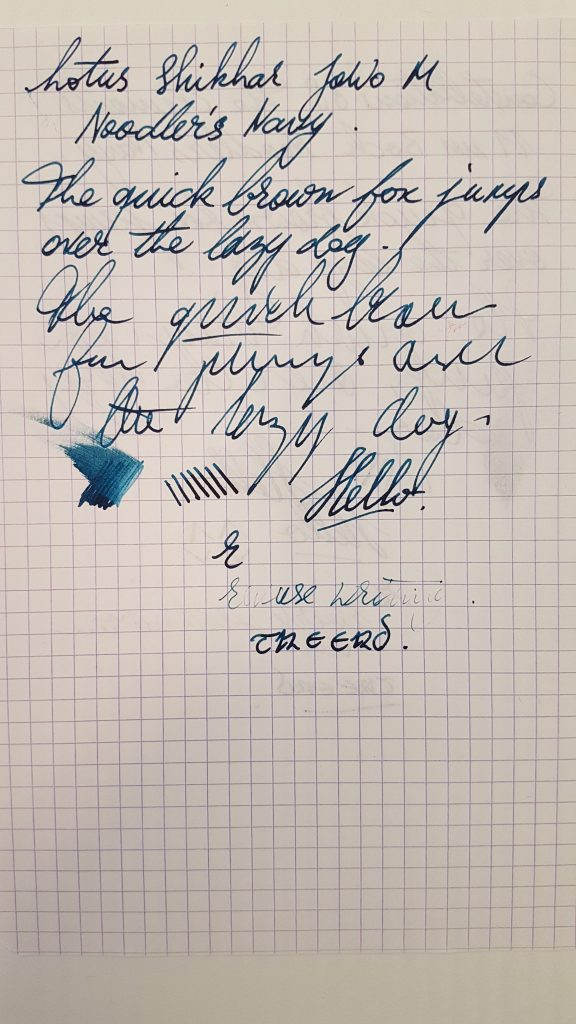 Lotus Shikhar JoWo M
Noodler's Navy.
The quick brown fox jumps
over the lazy dog.
The quick brown
fox jumps over
the lazy dog.
Hello!
R
Reverse writing.
THE END.